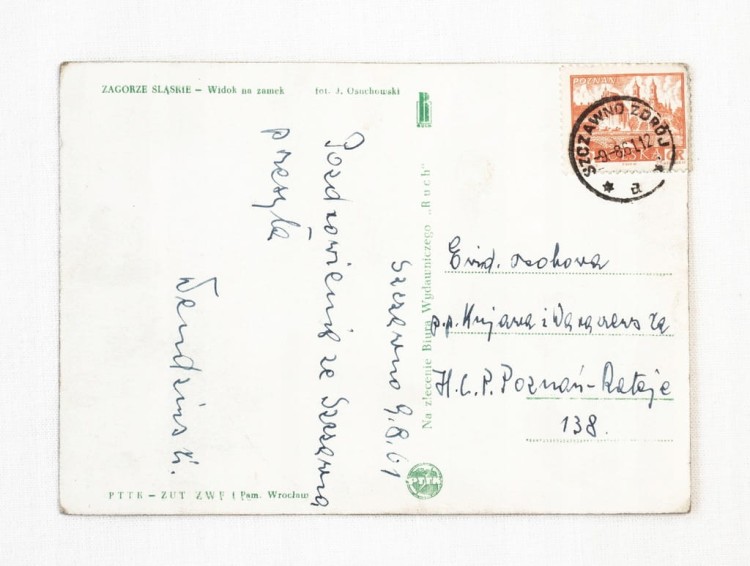 ZAGORZE ŚLĄSKIE – Widok na zamek
fot. J. Osuchowski
RUCH
POZNAŃ
POLSKA
SZCZAWNO ZDRÓJ
-9-8.61.12
a
Szczawno 9.8.61
Pozdrowienia ze Szczawna
przesyła
Na zlecenie Biura Wydawniczego „Ruch"
Ewid. osobowa
p.p. Kujawa i
H.C.P. Poznań-Rataje
138.
PTTK
PTTK – ZUT ZWF i Pam. Wrocław